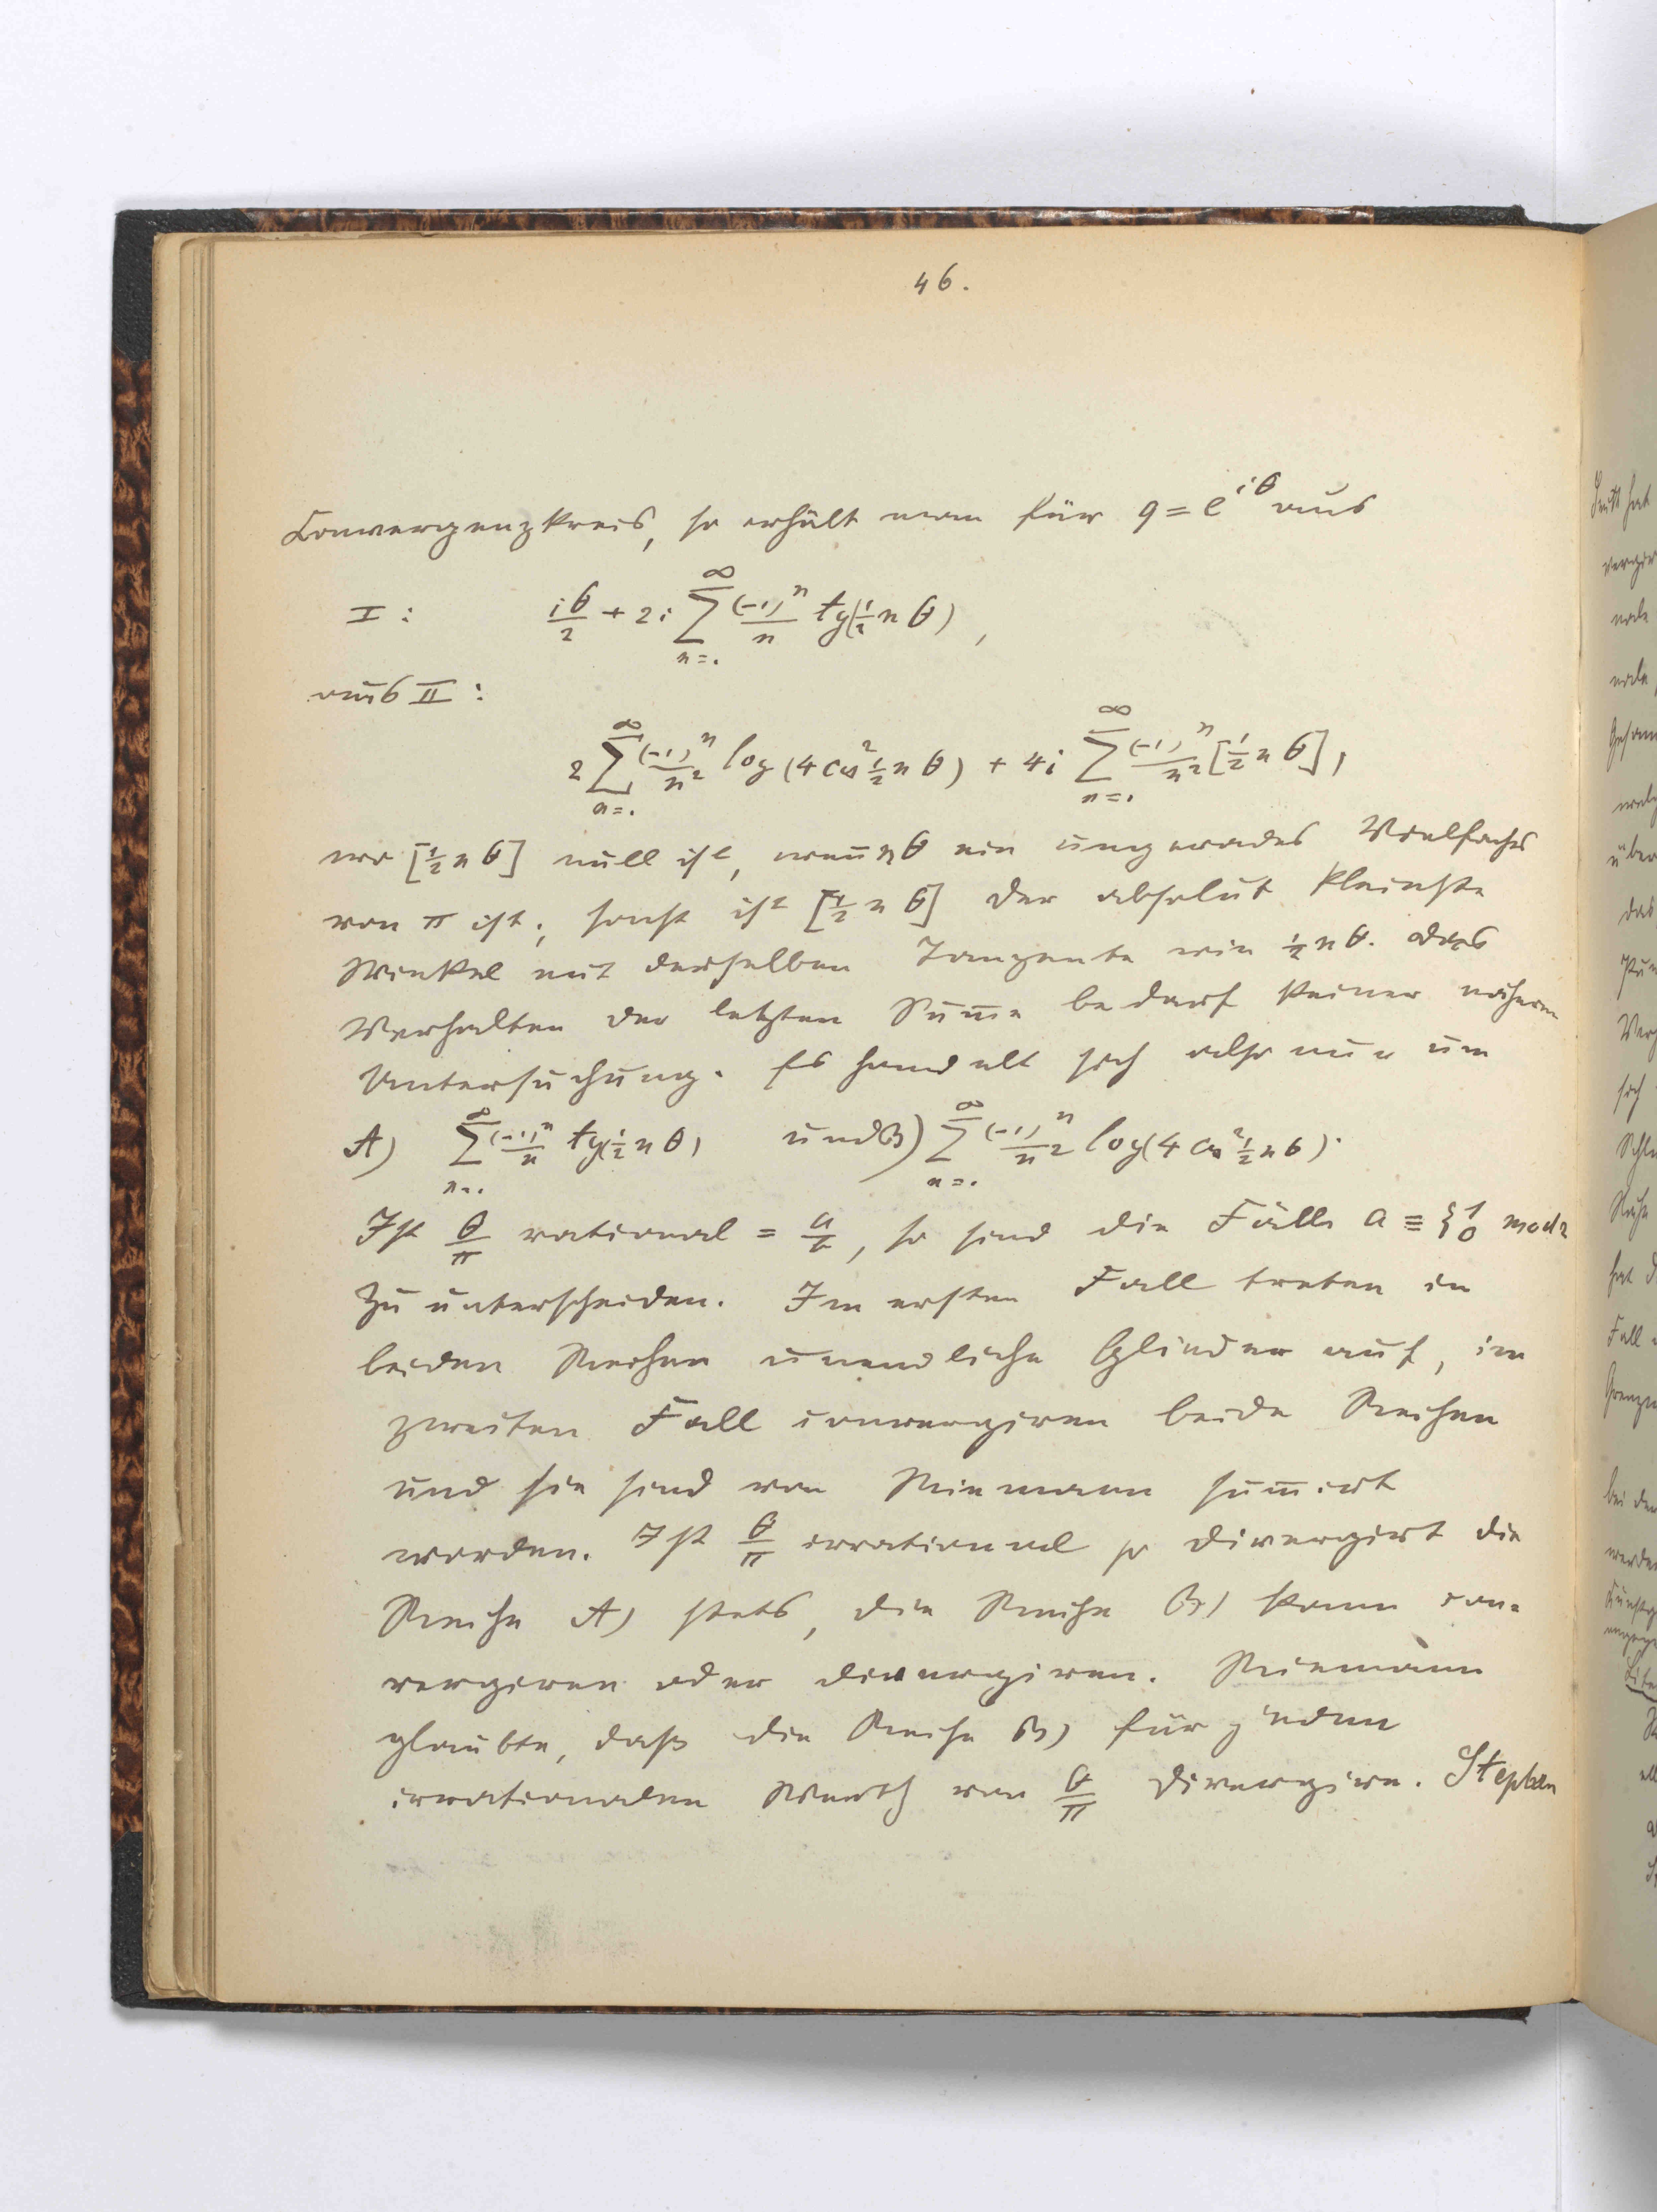 46.
Convergenzkreis, so erhält man für q = e^{iθ} aus
I: iθ/2 + 2i ∑_{n=1}^∞ (-1)^n/n tg(½nθ),
aus II:
2 ∑_{n=1}^∞ (-1)^n/n² log(4cos²½nθ) + 4i ∑_{n=1}^∞ (-1)^n/n² [½nθ],
wo [½nθ] null ist, wenn nθ ein ungerades Vielfaches
von π ist; sonst ist [½nθ] der absolut kleinste
Winkel mit derselben Tangente wie ½nθ. Das
Verhalten der letzten Summe bedarf keiner näheren
Untersuchung. Es handelt sich also nur um
A) ∑_{n=1}^∞ (-1)^n/n tg(½nθ) und B) ∑_{n=1}^∞ (-1)^n/n² log(4cos²½nθ).
Ist θ/π rational = a/b, so sind die Fälle a ≡ {1 0 mod 2
zu unterscheiden. Im ersten Fall treten in
beiden Reihen unendliche Glieder auf, im
zweiten Fall convergiren beide Reihen
und sie sind von Riemann summirt
worden. Ist θ/π irrational so divergirt die
Reihe A) stets, die Reihe B) kann con=
vergiren oder divergiren. Riemann
glaubte, daß die Reihe B) für jeden
irrationalen Werth von θ/π divergire. Stephen